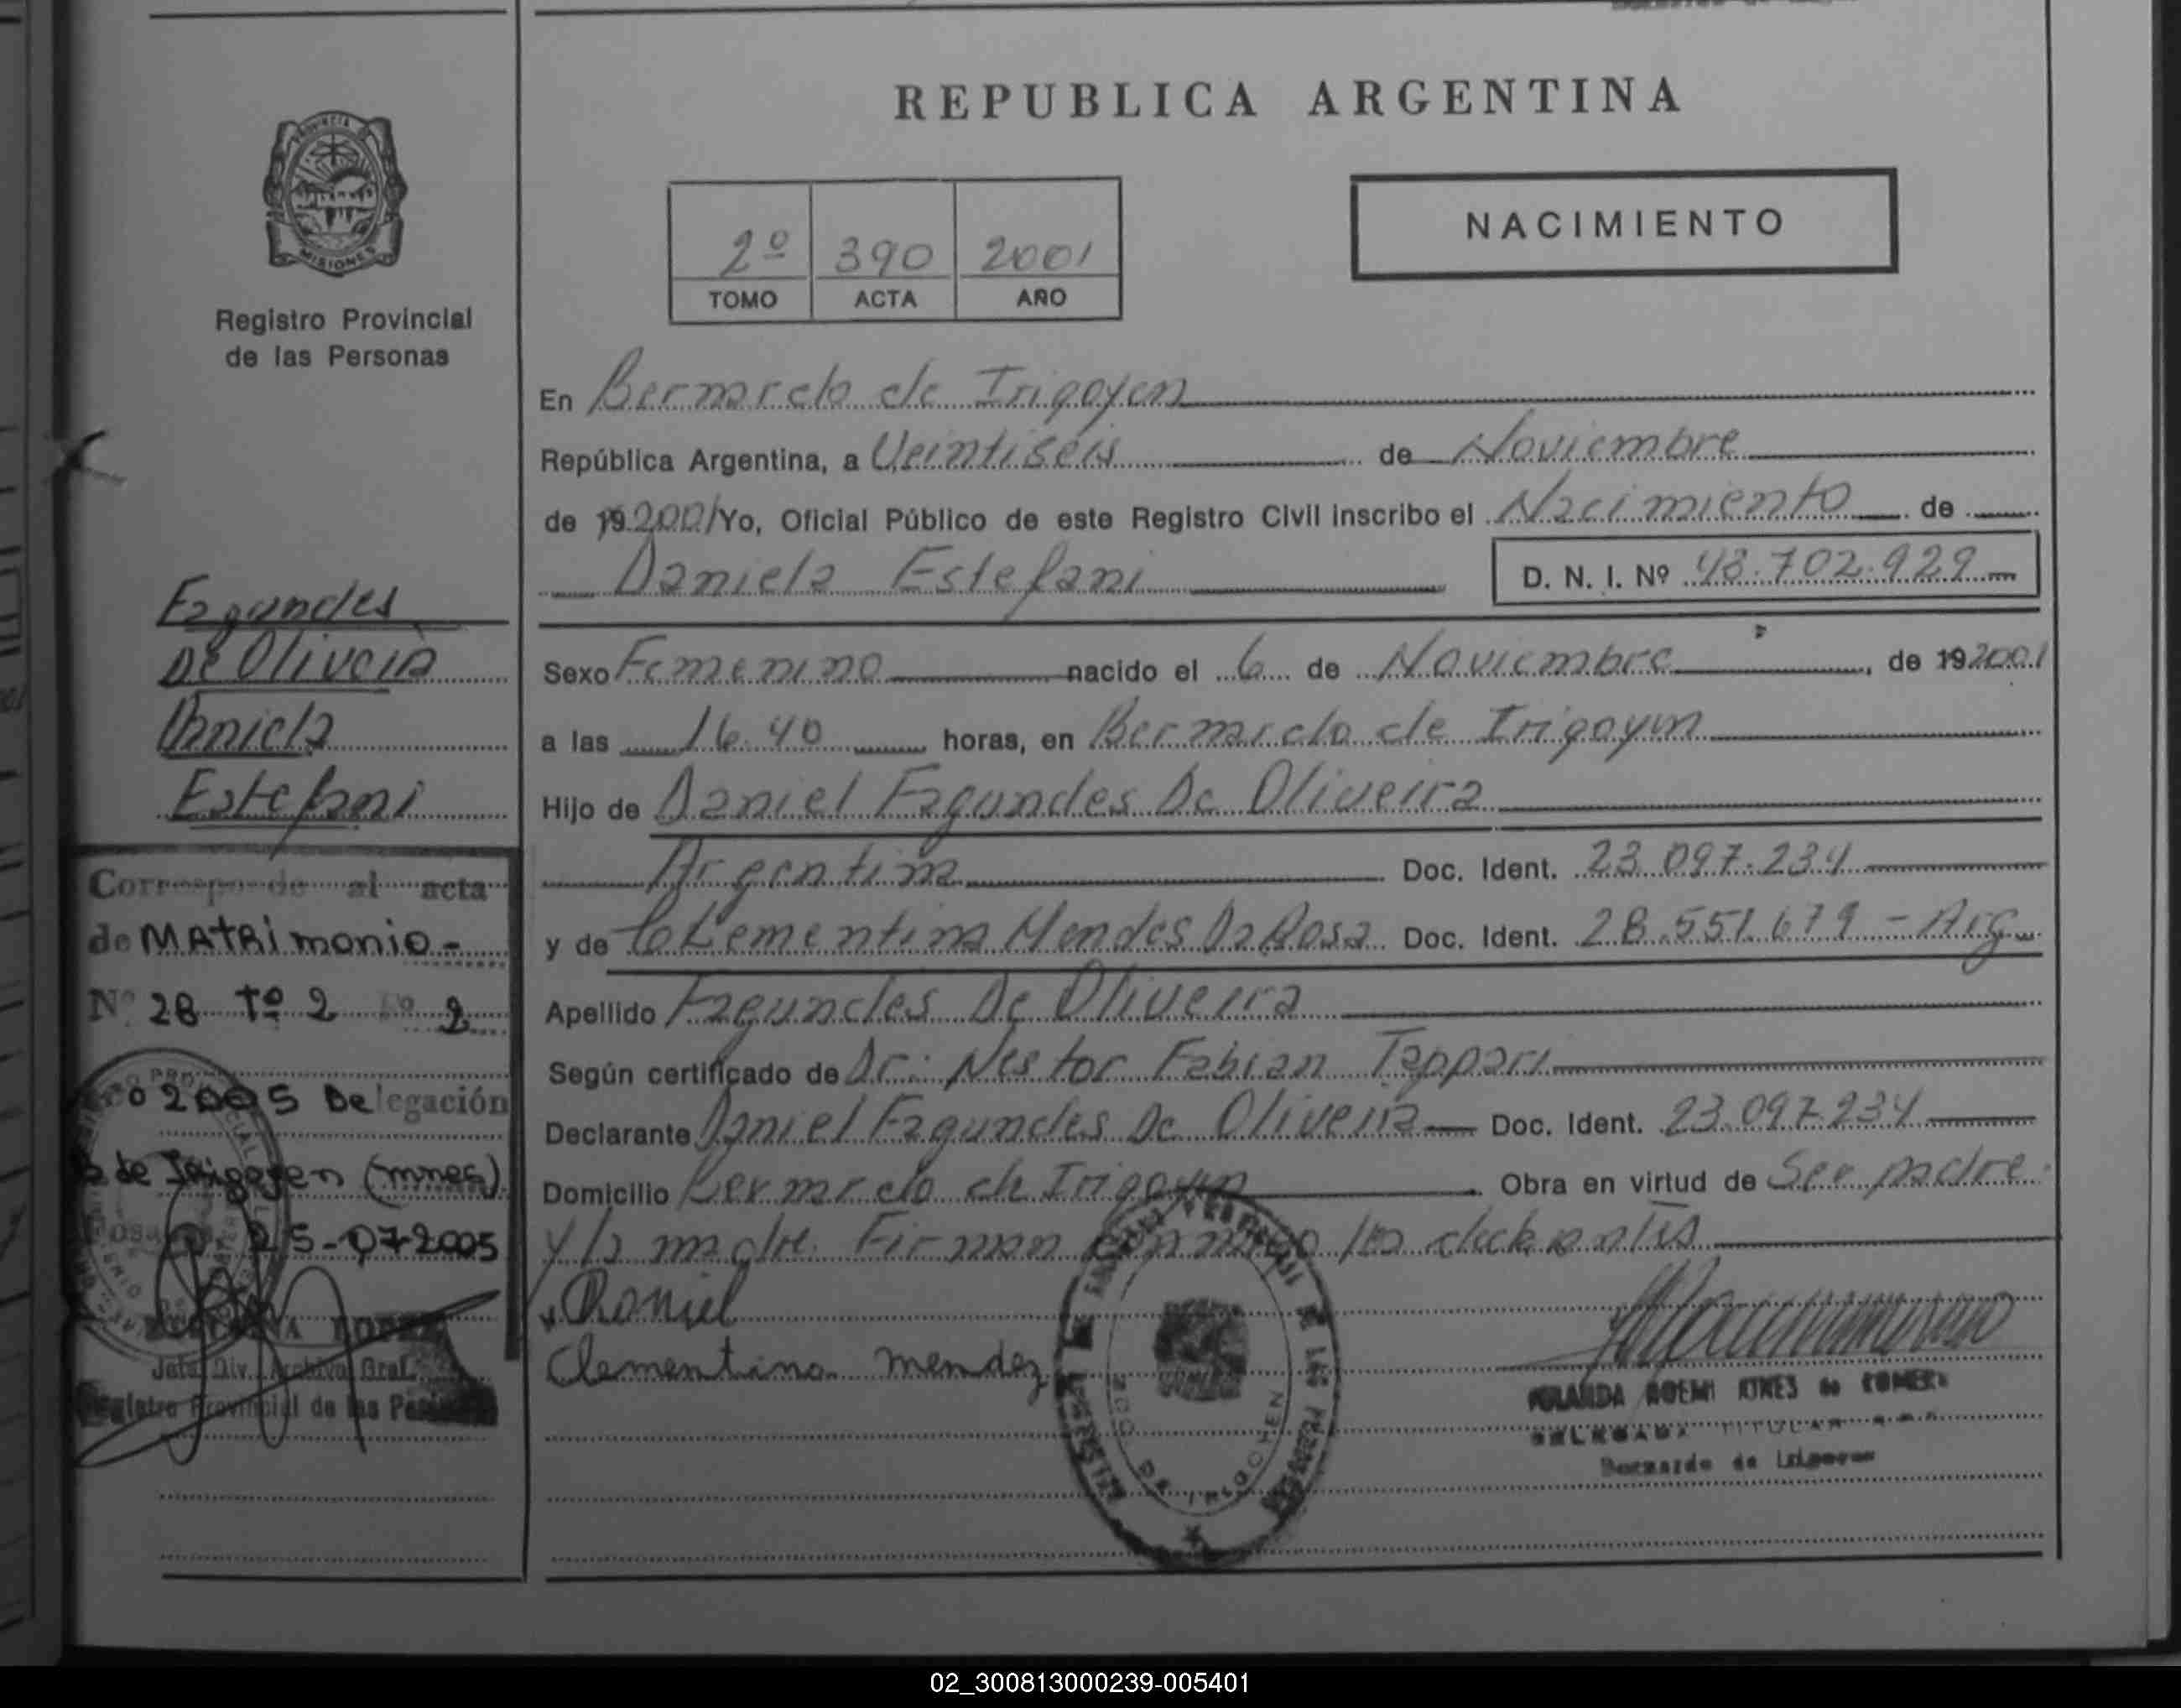 REPUBLICA ARGENTINA
PROVINCIA DE
MISIONES
Registro Provincial
de las Personas
2º 390 2001
TOMO ACTA AÑO
NACIMIENTO
En Bernardo de Irigoyen
República Argentina, a Veintiséis de Noviembre
de 19 2001 Yo, Oficial Público de este Registro Civil inscribo el Nacimiento de
Daniela Estefani
D. N. I. Nº 43.702.929
Sexo Femenino nacido el 6 de Noviembre, de 19 2001
a las 16.40 horas, en Bernardo de Irigoyen
Hijo de Daniel Fagundes De Oliveira
Argentina Doc. Ident. 23.097.234
y de Clementina Mendes Da Rosa Doc. Ident. 28.551.679 - Arg
Apellido Fagundes De Oliveira
Según certificado de Dr: Nestor Fabian Tappari
Declarante Daniel Fagundes De Oliveira Doc. Ident. 23.097.234
Domicilio Bernardo de Irigoyen Obra en virtud de Ser padre
y la madre. Firman conmigo los declarantes
Daniel
Clementina mendez
DELEGADA TITULAR
Bernardo de Irigoyen
Fagundes
De Oliveira
Daniela
Estefani
Corresponde al acta
de MATRimonio -
Nº 28 Tº 2 Fº 2
2005 Delegación
B de Irigoyen (mnes)
25-07-2005
Jefa Div. Archivo Gral.
Registro Provincial de las Personas
02_300813000239-005401